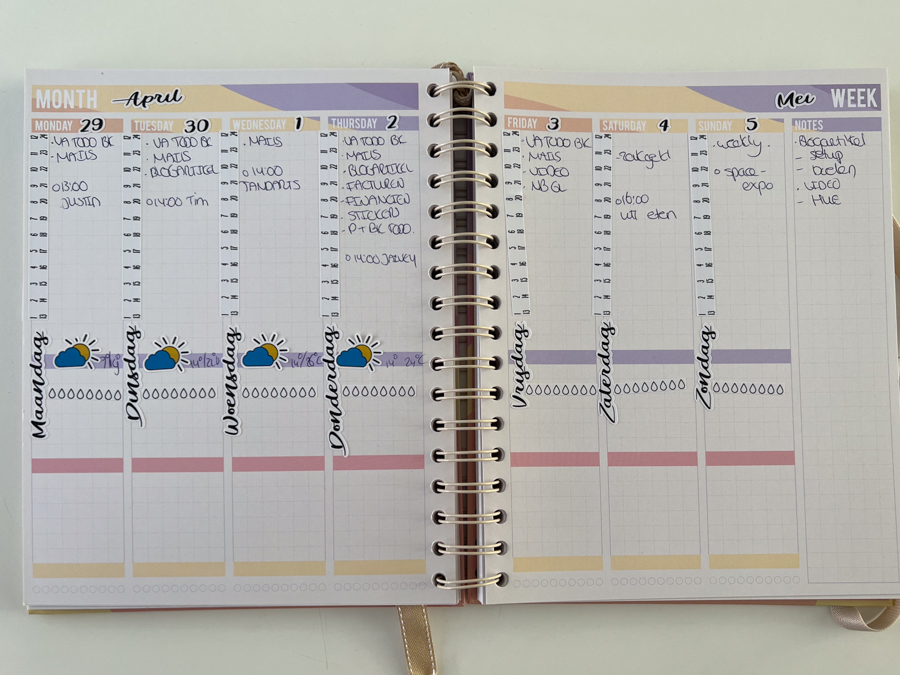 MONTH April
Mei WEEK
MONDAY 29
-VA TODO BK
-MAILS
o 13:00
JUSTIN
Maandag
TUESDAY 30
- VA TODO BK
- MAILS
- BLOGARTIKEL
o 14:00 Tim
Dinsdag
WEDNESDAY 1
- MAILS
o 14:00
TANDARTS
Woensdag
THURSDAY 2
-VA TODO BK
-MAILS
-BLOGARTIKEL
-FACTUREN
-FINANCIEN
- STICKERS
- P+BK TODO.
o 14:00
14° 24°C
Donderdag
FRIDAY 3
-VA TODO BK
-MAILS
-VIDEO
-NBGL
Vrijdag
SATURDAY 4
- zakgeld
o 18:00
uit eten
Zaterdag
SUNDAY 5
- weekly.
o space-
expo
Zondag
NOTES
- setup
- doelen
- VIDEO
- HUE